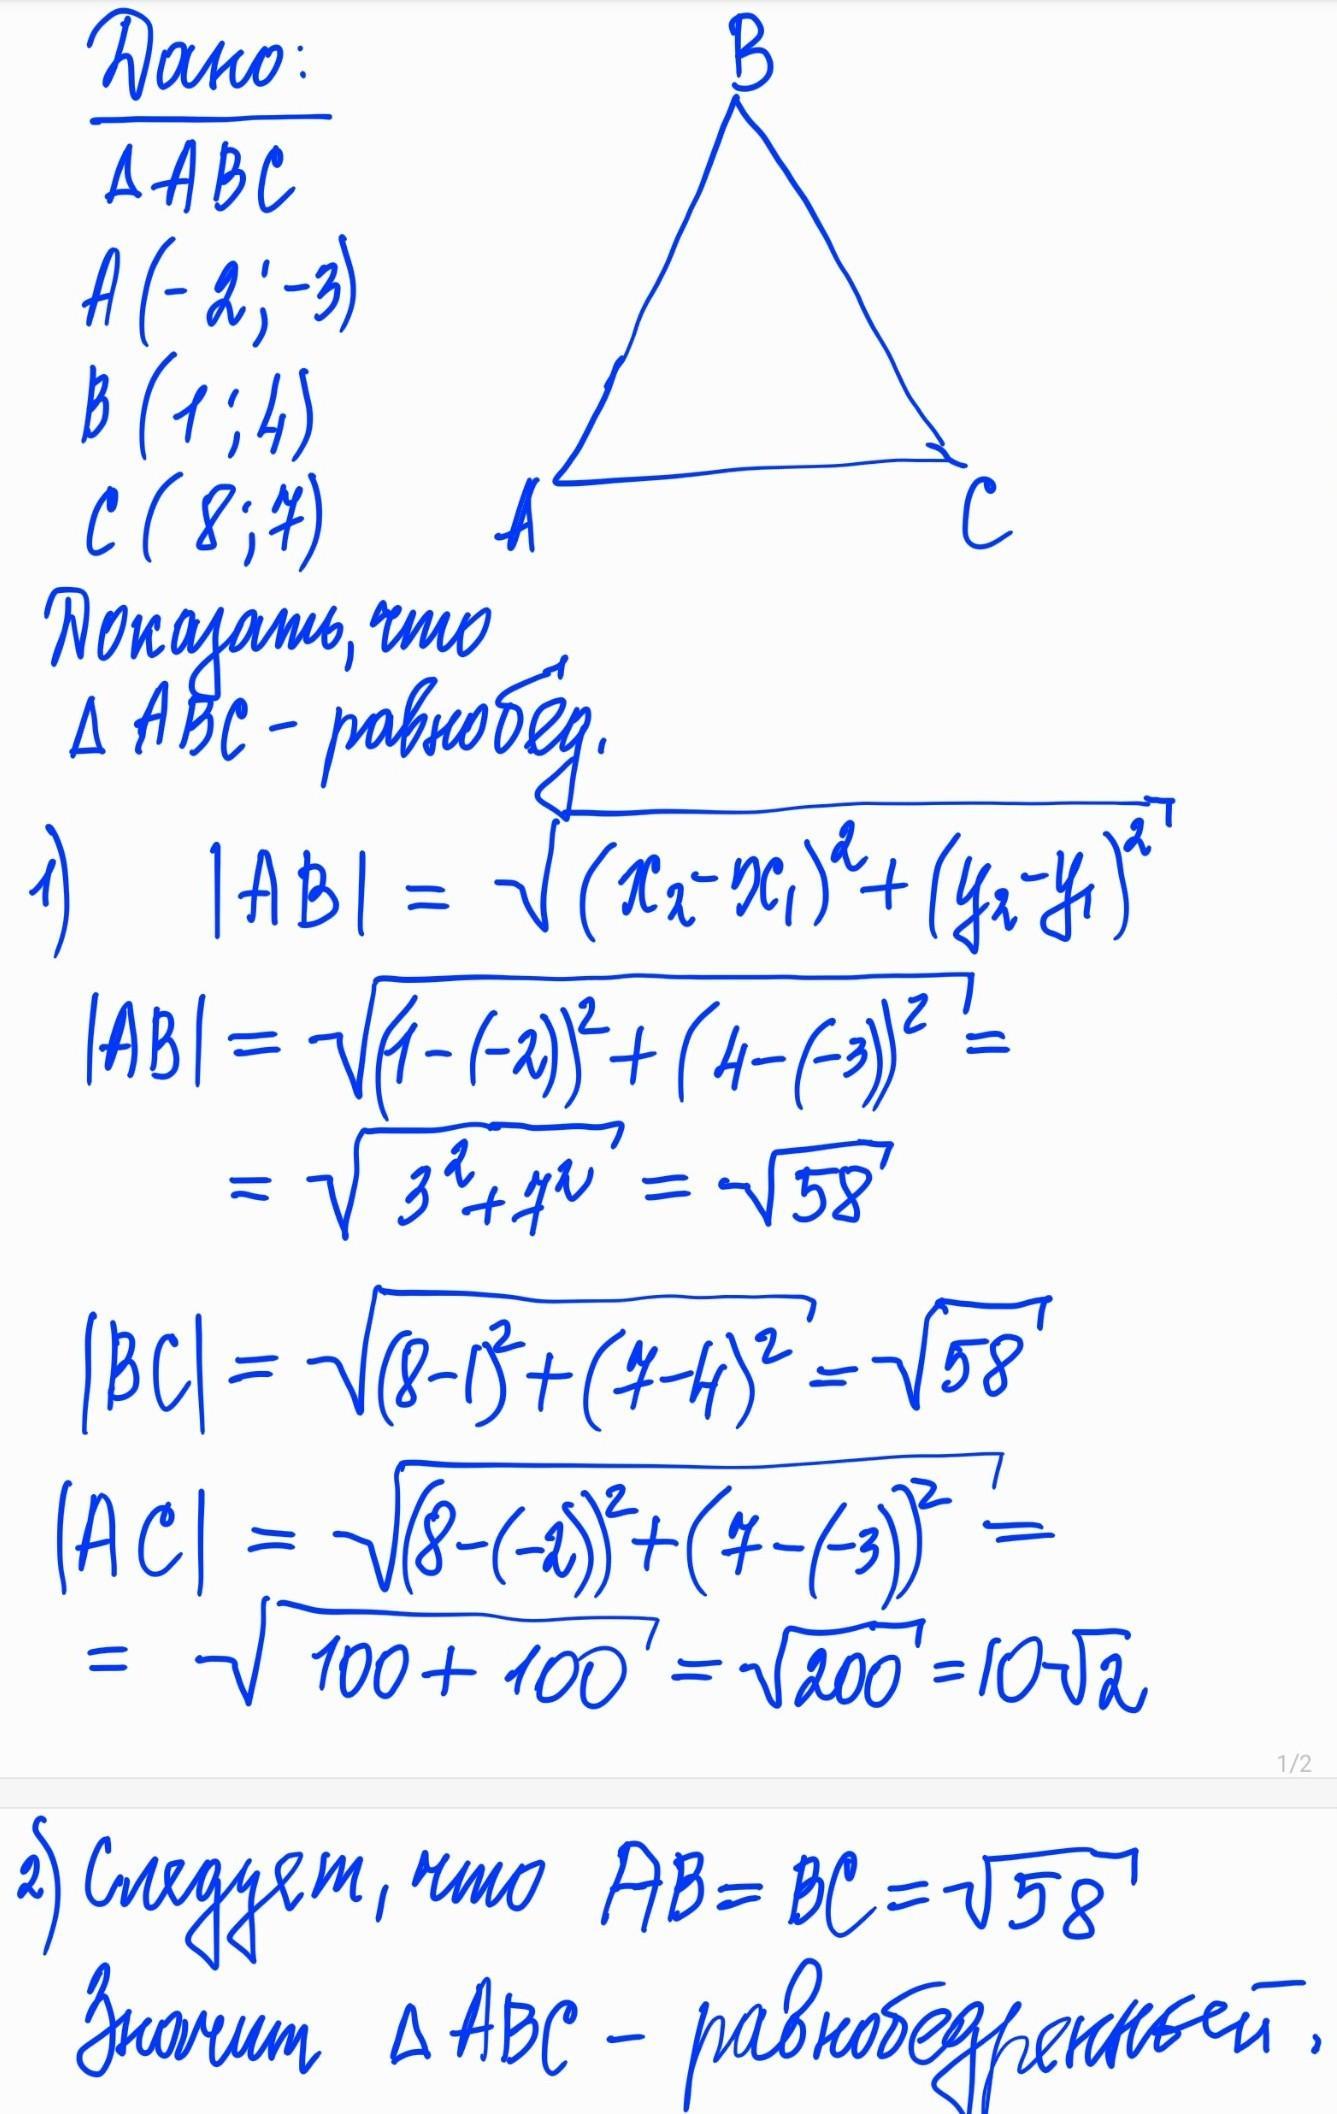 Дано:
B
ΔABC
A(-2;-3)
B(1;4)
C(8;7)
A
C
Показать, что
ΔABC - равнобед.
1) |AB| = √((x₂-x₁)²+(y₂-y₁)²)
|AB| = √((1-(-2))²+(4-(-3))²) =
= √(3²+7²) = √58
|BC| = √((8-1)²+(7-4)²) = √58
|AC| = √((8-(-2))²+(7-(-3))²) =
= √(100+100) = √200 = 10√2
1/2
2) Следует, что AB = BC = √58
Значит ΔABC - равнобедренный.